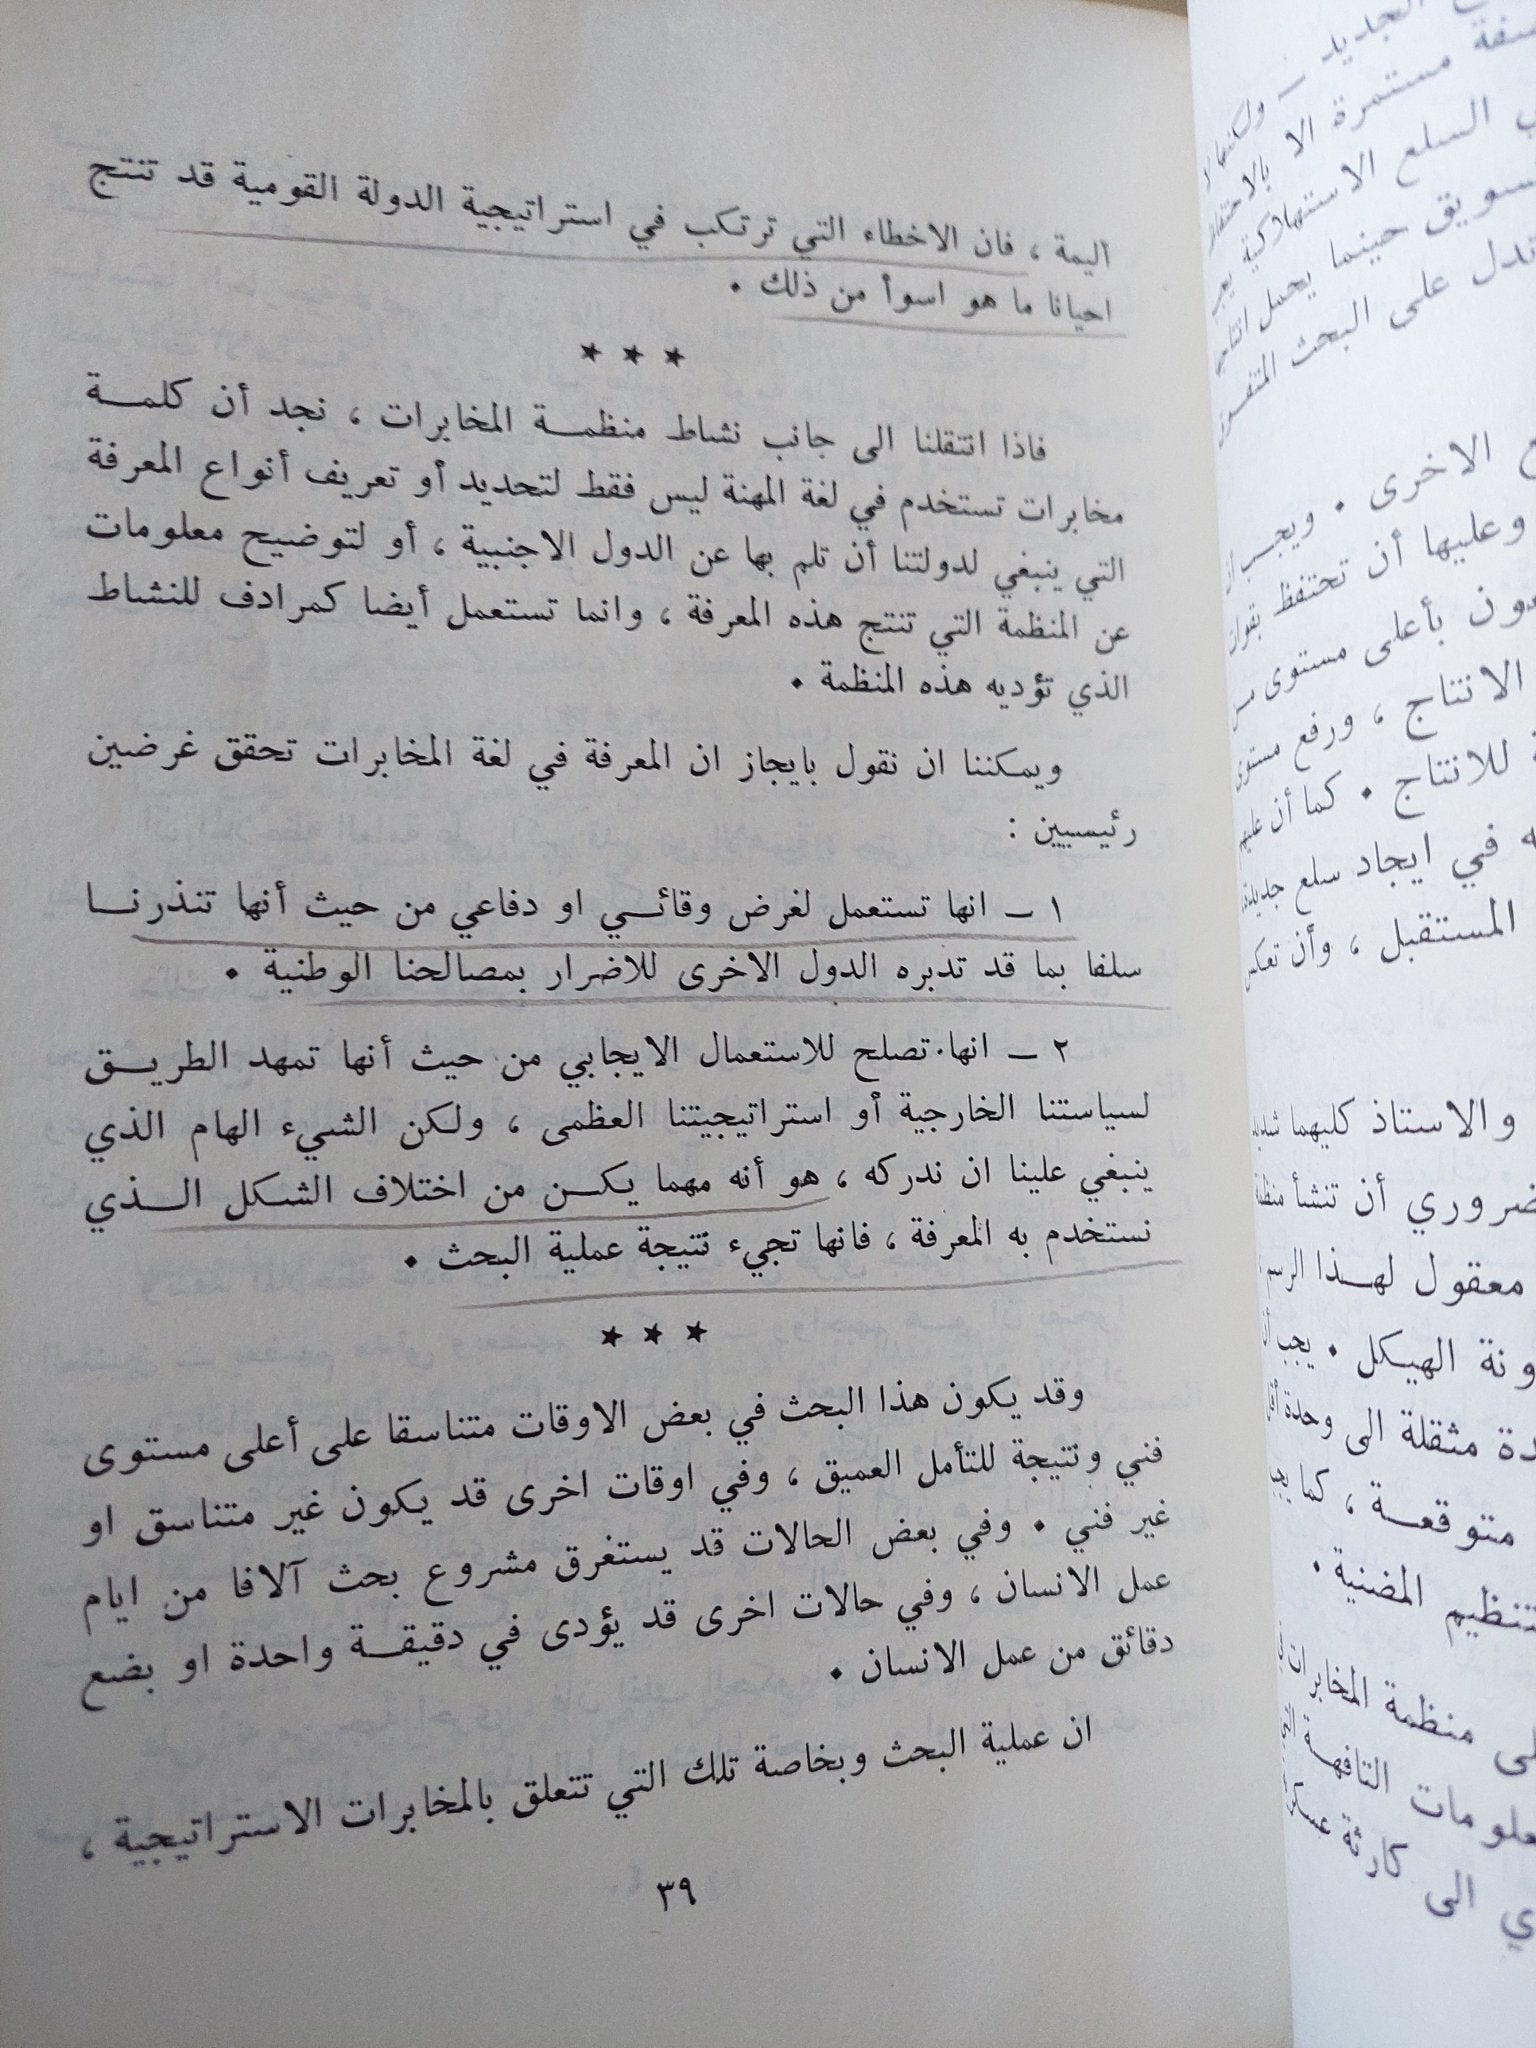 اليمة ، فان الاخطاء التي ترتكب في استراتيجية الدولة القومية قد تنتج
احيانا ما هو اسوأ من ذلك .
★ ★ ★
فاذا انتقلنا الى جانب نشاط منظمـــة المخابرات ، نجد أن كلمـــة
مخابرات تستخدم في لغة المهنة ليس فقط لتحديد أو تعريف أنواع المعرفة
التي ينبغي لدولتنا أن تلم بها عن الدول الاجنبية ، أو لتوضيح معلومات
عن المنظمة التي تنتج هذه المعرفة ، وانما تستعمل أيضا كمرادف للنشاط
الذي تؤديه هذه المنظمة .
ويمكننا ان نقول بايجاز ان المعرفة في لغة المخابرات تحقق غرضين
رئيسيين :
١ – انها تستعمل لغرض وقائـــي او دفاعي من حيث أنها تنذرنـــا
سلفا بما قد تدبره الدول الاخرى للاضرار بمصالحنا الوطنية .
٢ – انها تصلح للاستعمال الايجابي من حيث أنها تمهد الطريـــق
لسياستنا الخارجية أو استراتيجيتنا العظمى ، ولكن الشيء الهام الذي
ينبغي علينا ان ندركه ، هو أنه مهما يكـــن من اختلاف الشكل الـــذي
نستخدم به المعرفة ، فانها تجيء نتيجة عملية البحث .
★ ★ ★
وقد يكون هذا البحث في بعض الاوقات متناسقا على أعلى مستوى
فني ونتيجة للتأمل العميق ، وفي اوقات اخرى قد يكون غير متناسق او
غير فني . وفي بعض الحالات قد يستغرق مشروع بحث آلافا من ايام
عمل الانسان ، وفي حالات اخرى قد يؤدى في دقيقـــة واحدة او بضع
دقائق من عمل الانسان .
ان عملية البحث وبخاصة تلك التي تتعلق بالمخابرات الاستراتيجية ،
٣٩
الجديد – ولكنها لا
مستمرة الا بالاحتفاظ
السلع الاستهلاكية
حينما يحمل
تدل على البحث
الاخرى . ويجب ان
وعليها أن تحتفظ
بأعلى مستوى
الانتاج ، ورفع مستوى
للانتاج . كما أن
في ايجاد سلع جديدة
المستقبل ، وأن تعكس
والاستاذ كليهما
أن تنشأ
معقول لهـــذا الرسم
الهيكل . يجب
مثقلة الى وحدة
متوقعـــة ، كما
المضنية .
منظمة المخابرات
التافهـــة
الى كارثة